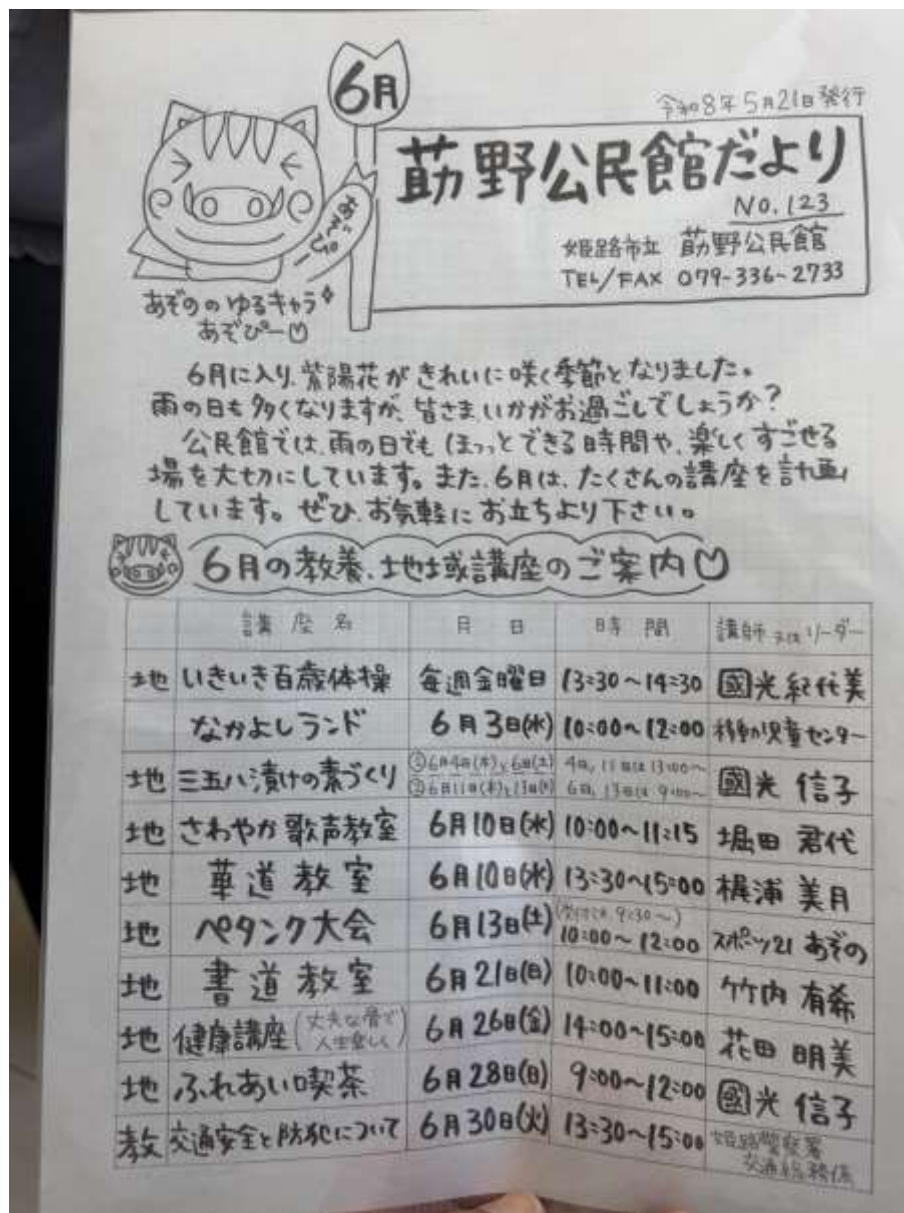 6月
令和8年5月21日発行
莇野公民館だより
No.123
姫路市立 莇野公民館
TEL/FAX 079-336-2733
あぞぴー
あぞののゆるキャラ
あぞぴー♡
6月に入り、紫陽花がきれいに咲く季節となりました。
雨の日も多くなりますが、皆さま、いかがお過ごしでしょうか?
公民館では、雨の日でもほっとできる時間や、楽しくすごせる
場を大切にしています。また、6月は、たくさんの講座を計画
しています。ぜひ、お気軽にお立ちより下さい。
6月の教養、地域講座のご案内♡
講座名 月日 時間 講師又はリーダー
地 いきいき百歳体操 毎週金曜日 13:30~14:30 國光紀代美
なかよしランド 6月3日(水) 10:00~12:00 移動児童センター
地 三五八漬けの素づくり ①6月4日(木)と6日(土) 4日,11日は13:00~
②6月11日(木)と13日(土) 6日,13日は9:00~ 國光 信子
地 さわやか歌声教室 6月10日(水) 10:00~11:15 堀田 君代
地 華道教室 6月10日(水) 13:30~15:00 梶浦 美月
地 ペタンク大会 6月13日(土) (受付は9:30~) 10:00~12:00 スポーツ21 あぞの
地 書道教室 6月21日(日) 10:00~11:00 竹内 有希
地 健康講座(丈夫な骨で人生楽しく) 6月26日(金) 14:00~15:00 花田 明美
地 ふれあい喫茶 6月28日(日) 9:00~12:00 國光 信子
教 交通安全と防犯について 6月30日(火) 13:30~15:00 姫路警察署
交通総務係